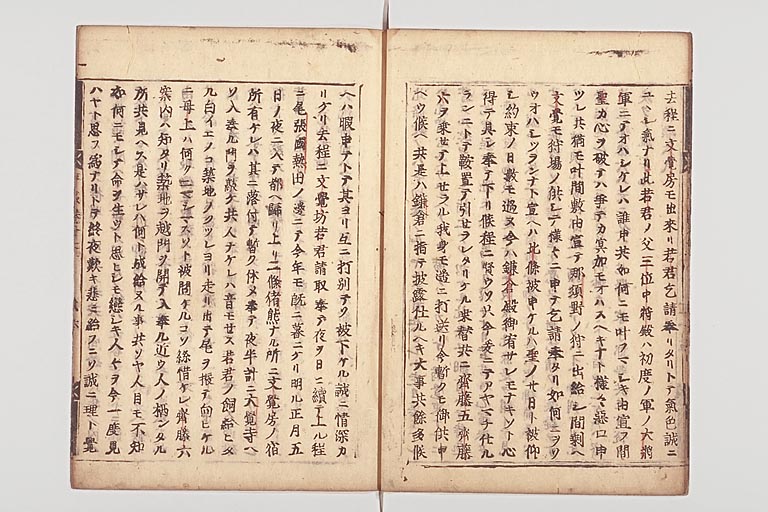 去程ニ文覺房モ出來リ若君乞請奉リタリトテ氣色誠ニ
ユヽシ氣ナリ此若君ノ父三位中將殿ハ初度ノ軍ノ大將
軍ニテオハシケレハ誰申共如何ニモ叶フマシキ由宣フ間
聖カ心ヲ破テハ爭テカ冥加モオハスヘキナト樣々惡口申
ツレ共猶モ叶間敷由宣テ那須野ノ狩ニ出給シ間剩ヘ
文覺モ狩場ノ供シテ樣々ニ申テ乞請奉タリ如何ニヲソ
ウオハシツランナト宣ヘハ北條被申ケルハ聖ノ廿日ト被仰
シ約束ノ日數モ過ヌ今ハ鎌倉殿御宥サレモナキソト心
得テ具シ奉テ下リ候程ニ賢ウソ只今爰ニテアヤマチ仕ル
ランニトテ鞍置テ引セラレタリケル乘替共ニ齋藤五齋藤
六ヲ乘セテ上セラル我身モ遙ニ打送リ今暫クモ御供申
ヘウ候ヘ共是ハ鎌倉ニ指テ披露仕ルヘキ大事共餘多候
ヘハ暇申テトテ其ヨリ互ニ打別テソ被下ケル誠ニ情深カ
リケリ去程ニ文覺坊若君請取奉テ夜ヲ日ニ續テ上ル程
ニ尾張國熱田ノ邊ニテ今年モ既ニ暮ニケリ明ル正月五
日ノ夜ニ入テ都ヘ歸リ上リ二條猪熊ナル所ニ文覺房ノ宿
所有ケレハ其ニ落付テ暫ク休メ奉テ夜半計ニ大覺寺ヘ
ソ入奉ル門ヲ敲ケ共人ナケレハ音モセス若君ノ飼給ヒタ
ル白イエノコ築地ノクツレヨリ走リ出テ尾ヲ振テ向ヒケル
ニ母上ハ何クニマシマスソト被問ケルコソ終惜ケレ齋藤六
案内ハ知タリ築地ヲ越門ヲ開テ入奉ル近ウ人ノ栖ンタル
所共見ヘス是ハサレハ何ト成給ヌル事共ソヤ人目モ不知
如何ニモシテ命ヲ生ハヤト思ヒシモ戀シキ人々ヲ今一度見
ハヤト思フ爲ナリトテ終夜歎キ悲ミ給フニソ誠ニ理ト覺